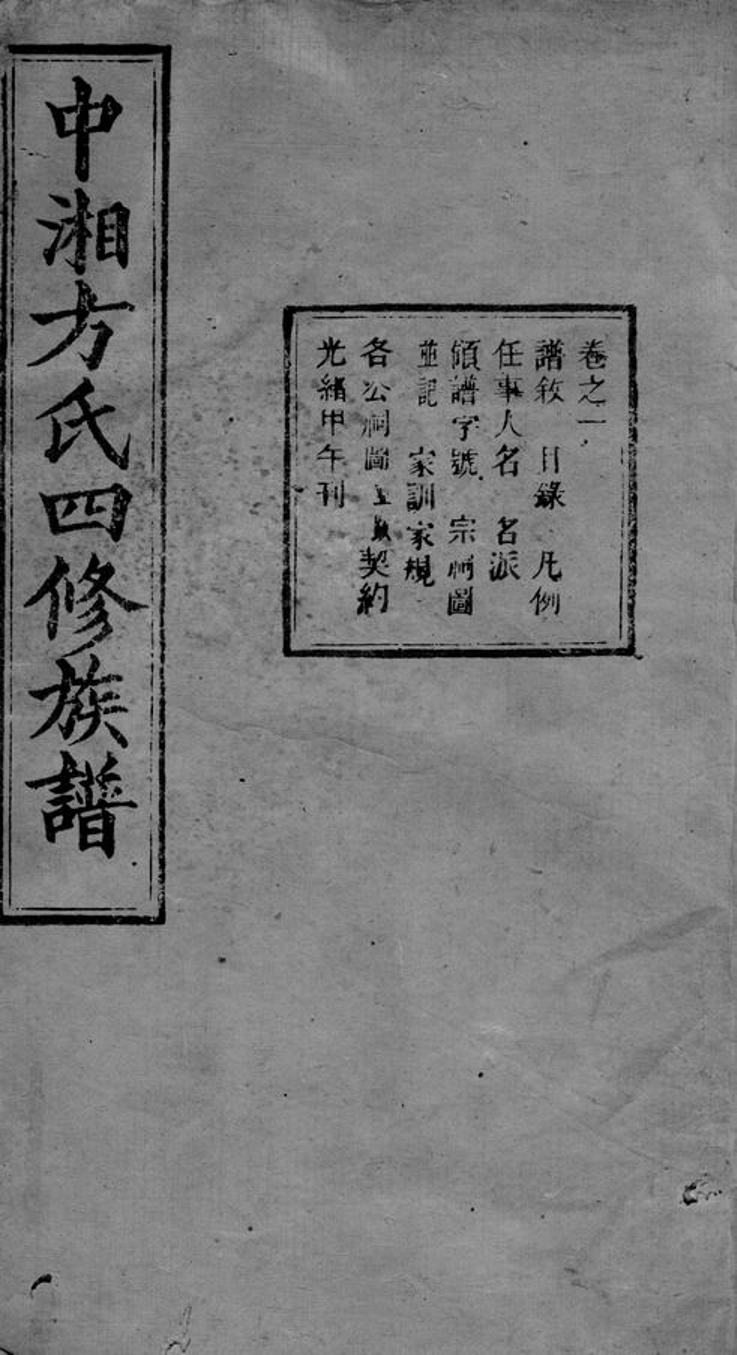 中湘方氏四修族譜
卷之一
譜敘 目錄 凡例
任事人名 名派
領譜字號 宗祠圖
並記 家訓家規
各公祠圖 契約
光緒甲午刊